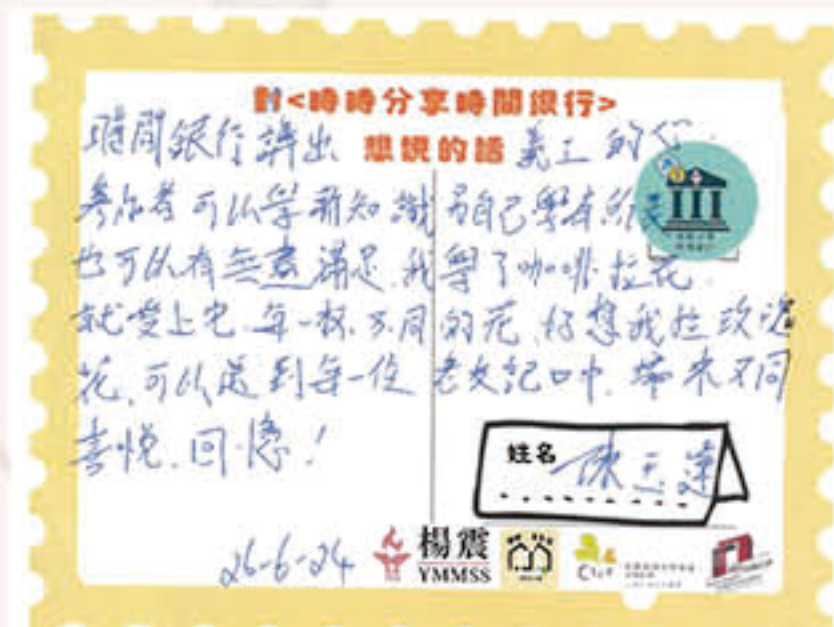 對<時時分享時間銀行>
想說的話
時間銀行講出 義工的心
參加者可以學新知識 另自己學有所
也可以有無盡滿足,我學了咖啡拉花
就愛上它,每一杯不同的花,好想我拉玫瑰
花,可以送到每一位老友記口中,帶來不同
喜悅,回憶!
姓名 陳玉蓮
26-6-24
楊震
YMMSS